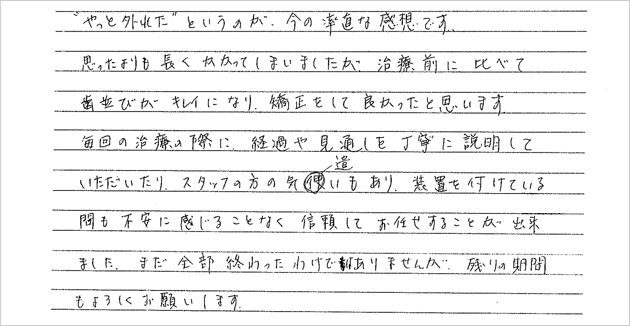 "やっと外れた"というのが、今の率直な感想です。
思ったよりも長くかかってしまいましたが、治療前に比べて
歯並びがキレイになり、矯正をして良かったと思います。
毎回の治療の際に、経過や見通しを丁寧に説明して
いただいたり、スタッフの方の気遣いもあり、装置を付けている
間も不安に感じることなく信頼してお任せすることが出来
ました。まだ全部終わったわけではありませんが、残りの期間
もよろしくお願いします。